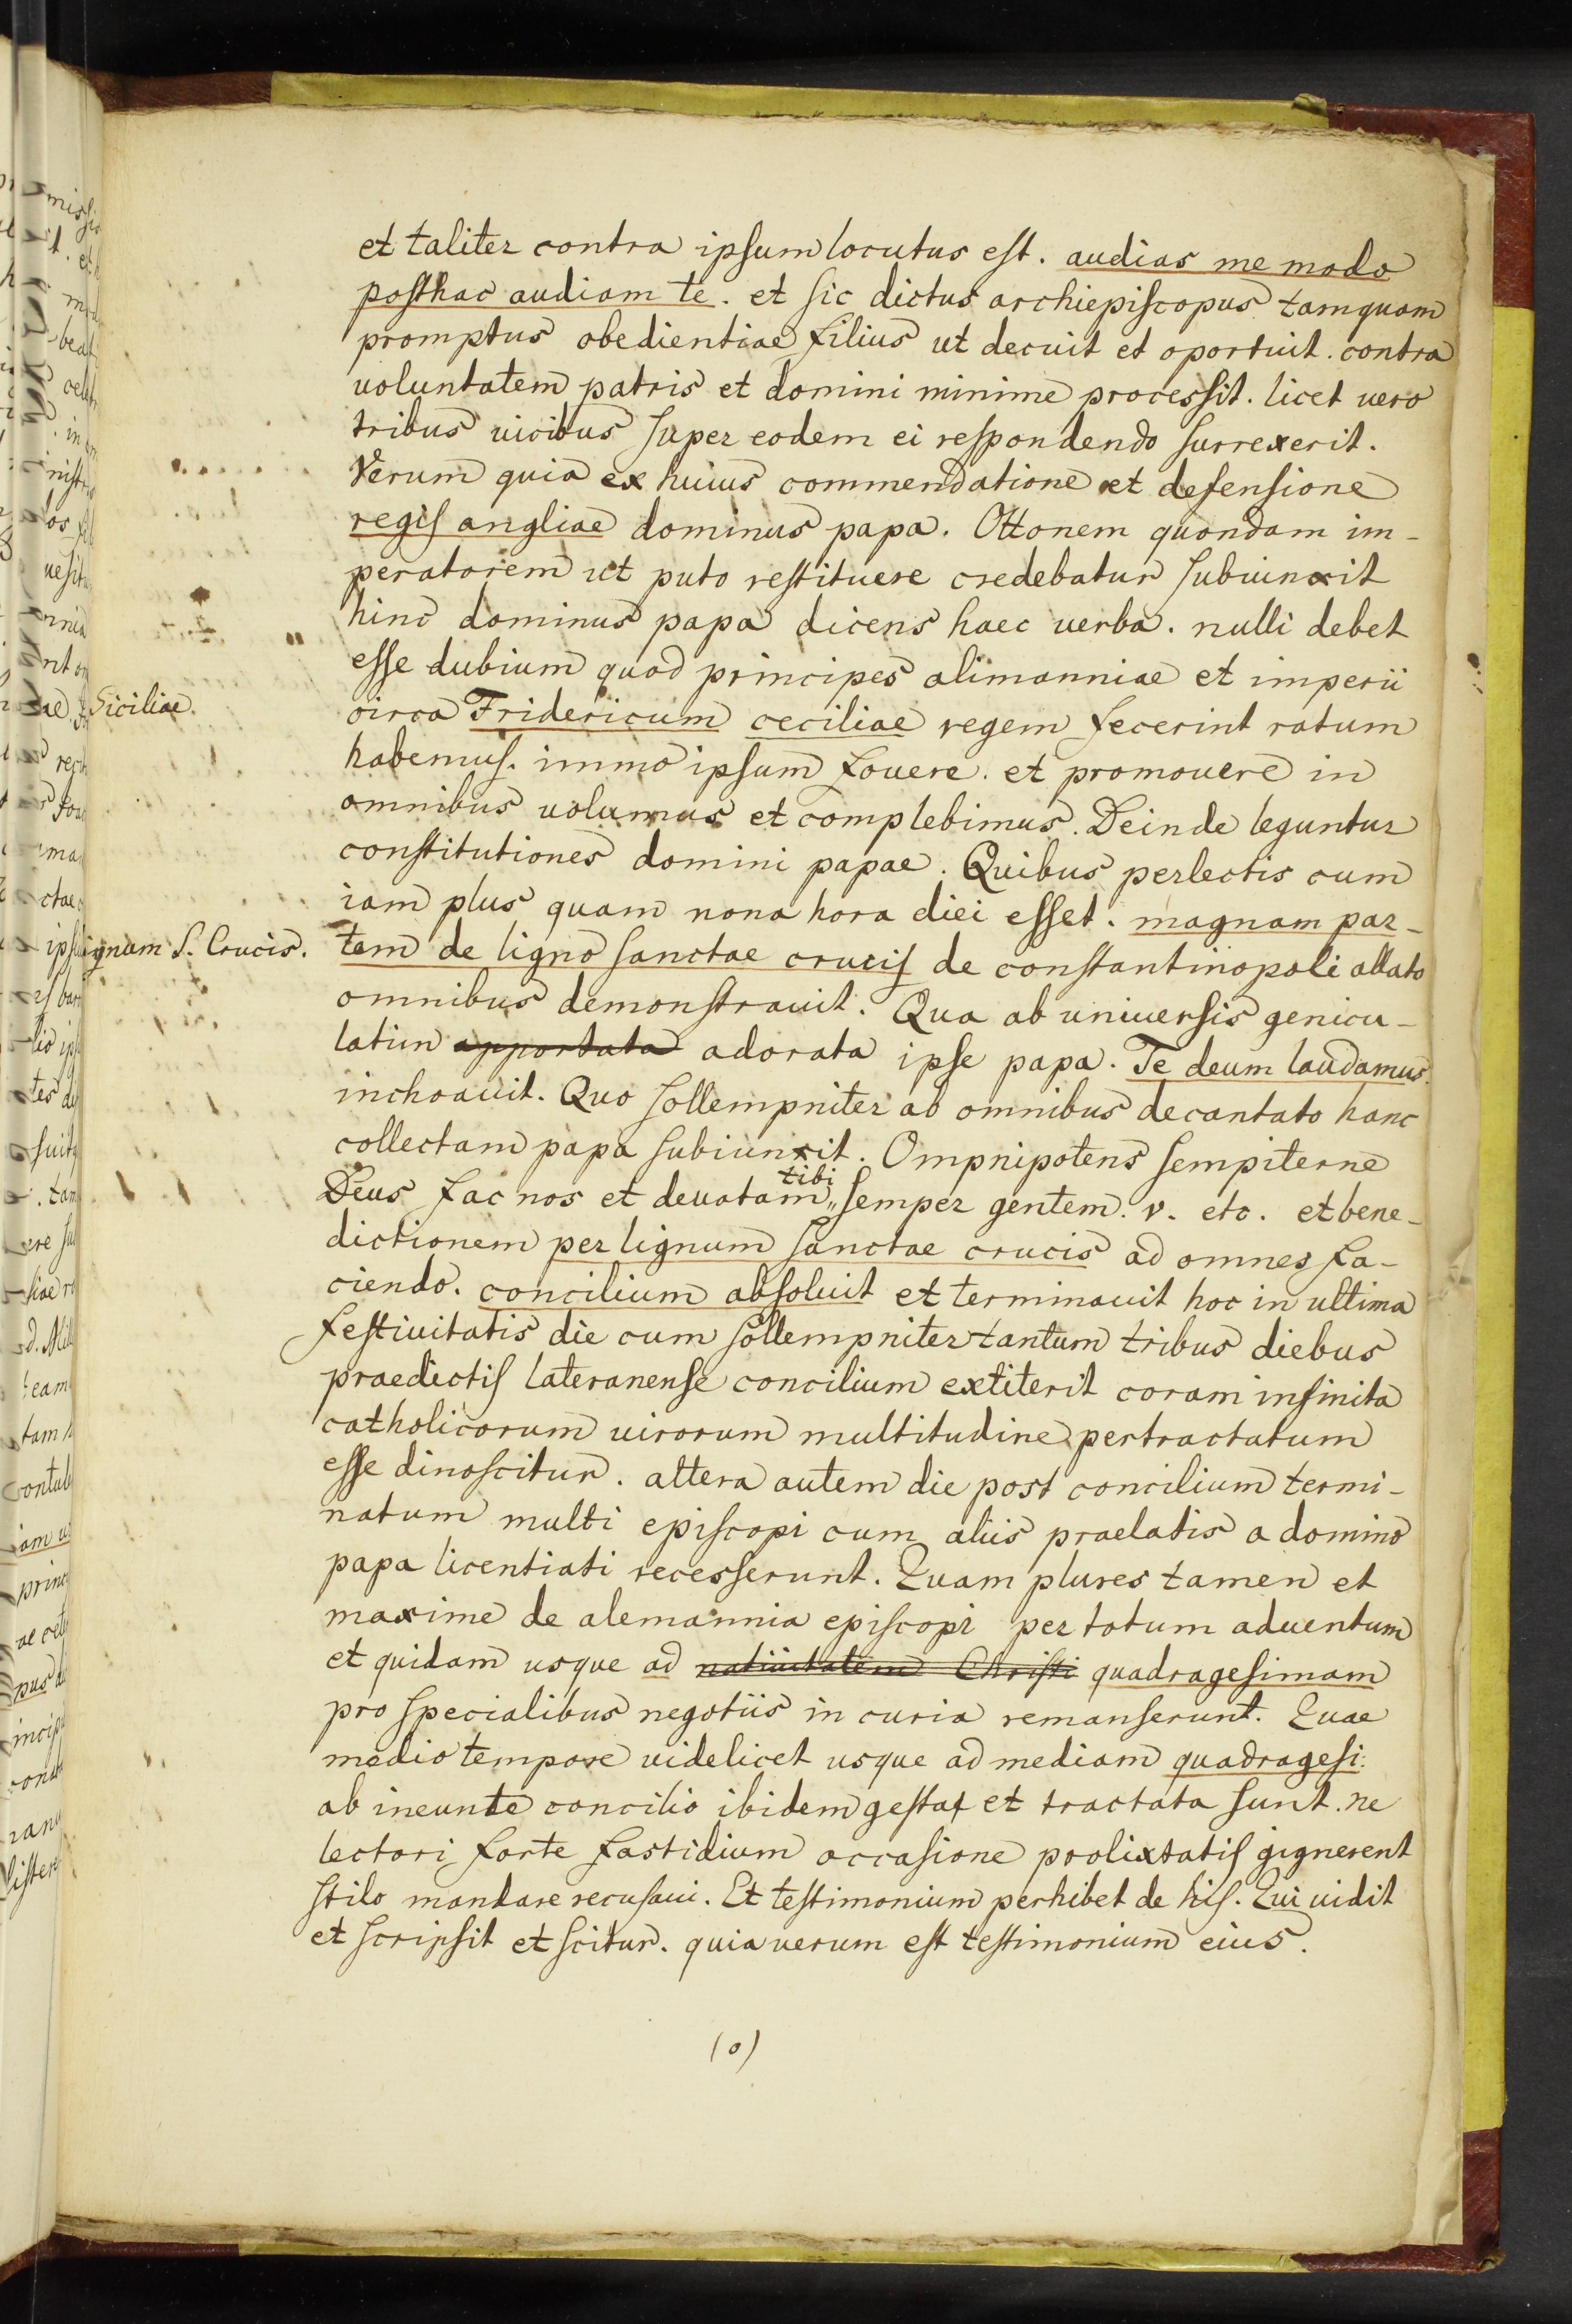 et taliter contra ipsum locutus est. audias me modo
posthac audiam te. et sic dictus archiepiscopus tamquam
promptus obedientiae filius ut decuit et oportuit. contra
uoluntatem patris et domini minime processit. licet uero
tribus uicibus super eodem ei respondendo surrexerit.
Verum quia ex huius commendatione et defensione
regis angliae dominus papa. Ottonem quondam im-
peratorem ut puto restituere credebatur subiunxit
hinc dominus papa dicens haec uerba. nulli debet
esse dubium quod principes alimanniae et imperii
Siciliae.
circa Fridericum ceciliae regem fecerint ratum
habemus. immo ipsum fouere. et promouere in
omnibus uolumus et complebimus. Deinde leguntur
constitutiones domini papae. Quibus perlectis cum
iam plus quam nona hora diei esset. magnam par-
ignum S. Crucis.
tem de ligno sanctae crucis de constantinopoli allato
omnibus demonstrauit. Qua ab uniuersis genicu-
latim apportata adorata ipse papa. Te deum laudamus.
inchoauit. Quo sollempniter ab omnibus decantato hanc
collectam papa subiunxit. Ompnipotens sempiterne
Deus fac nos et deuotam tibi semper gentem. v. etc. et bene-
dictionem per lignum sanctae crucis ad omnes fa-
ciendo. concilium absoluit et terminauit hoc in ultima
festiuitatis die cum sollempniter tantum tribus diebus
praedictis lateranense concilium extiterit coram infinita
catholicorum uirorum multitudine pertractatum
esse dinoscitur. altera autem die post concilium termi-
natum multi episcopi cum aliis praelatis a domino
papa licentiati recesserunt. Quam plures tamen et
maxime de alemannia episcopi per totum aduentum
et quidam usque ad natiuitatem Christi quadragesimam
pro specialibus negotiis in curia remanserunt. Quae
medio tempore uidelicet usque ad mediam quadragesi:
ab ineunte concilio ibidem gesta et tractata sunt. ne
lectori forte fastidium occasione prolixtatis gignerent
stilo mandare recusaui. Et testimonium perhibet de his. Qui uidit
et scripsit et scitur. quia uerum est testimonium eius.
(o)